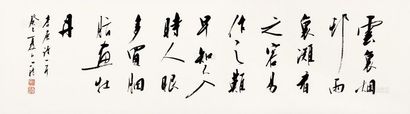 雲裏烟
邨雨
裏灘看
之容易
作之難
早知不入
時人眼
多買胭
脂畫牡
丹
李唐詩一首